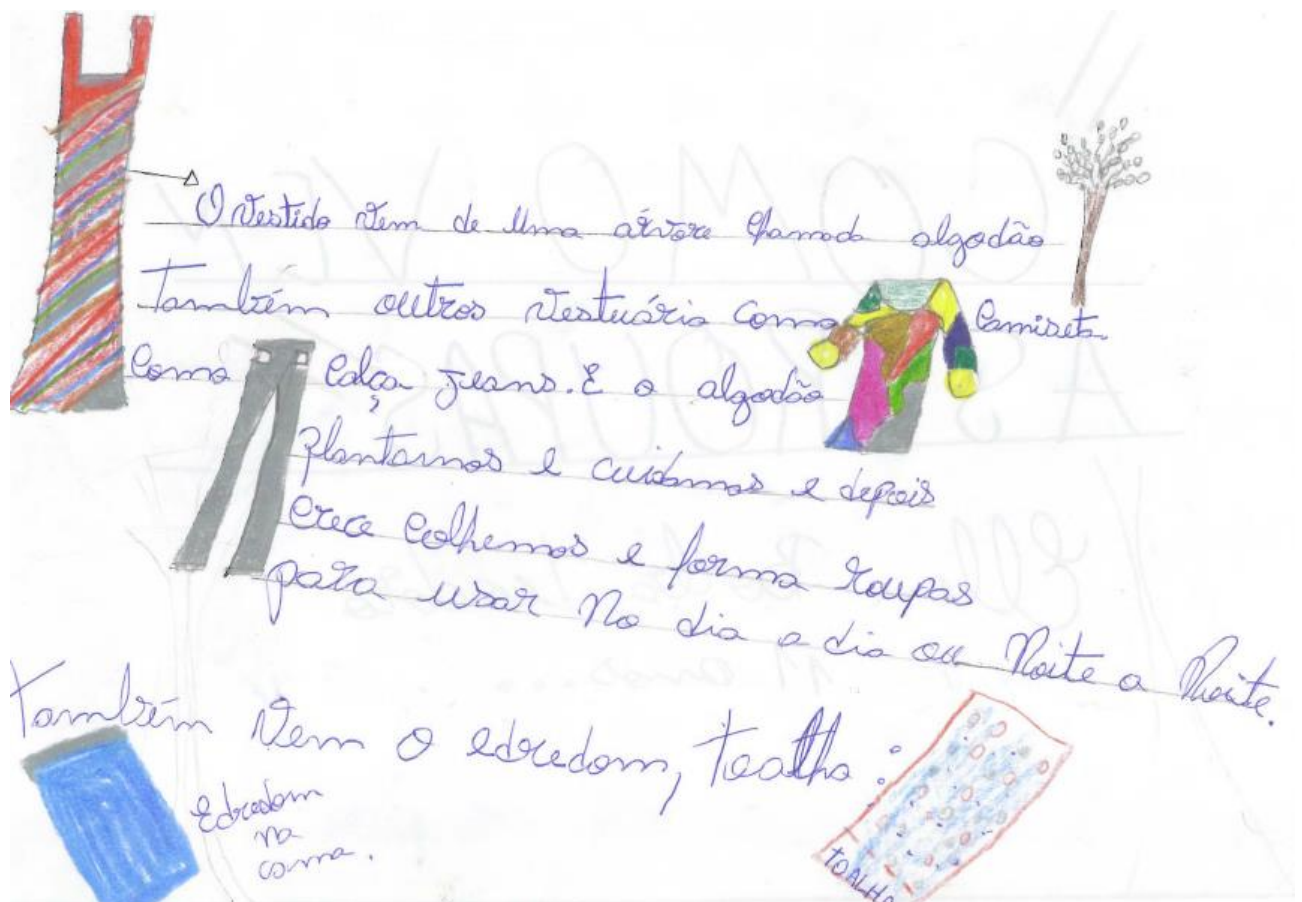 O vestido vem de uma árvore chamada algodão
Também outros vestuário como camiseta
como calça jeans. E o algodão
plantamos e cuidamos e depois
crece colhemos e forma roupas
para usar no dia a dia ou Noite a Noite.
Também vem o edredom, toalha:
Edredom
na
cama.
TOALHA